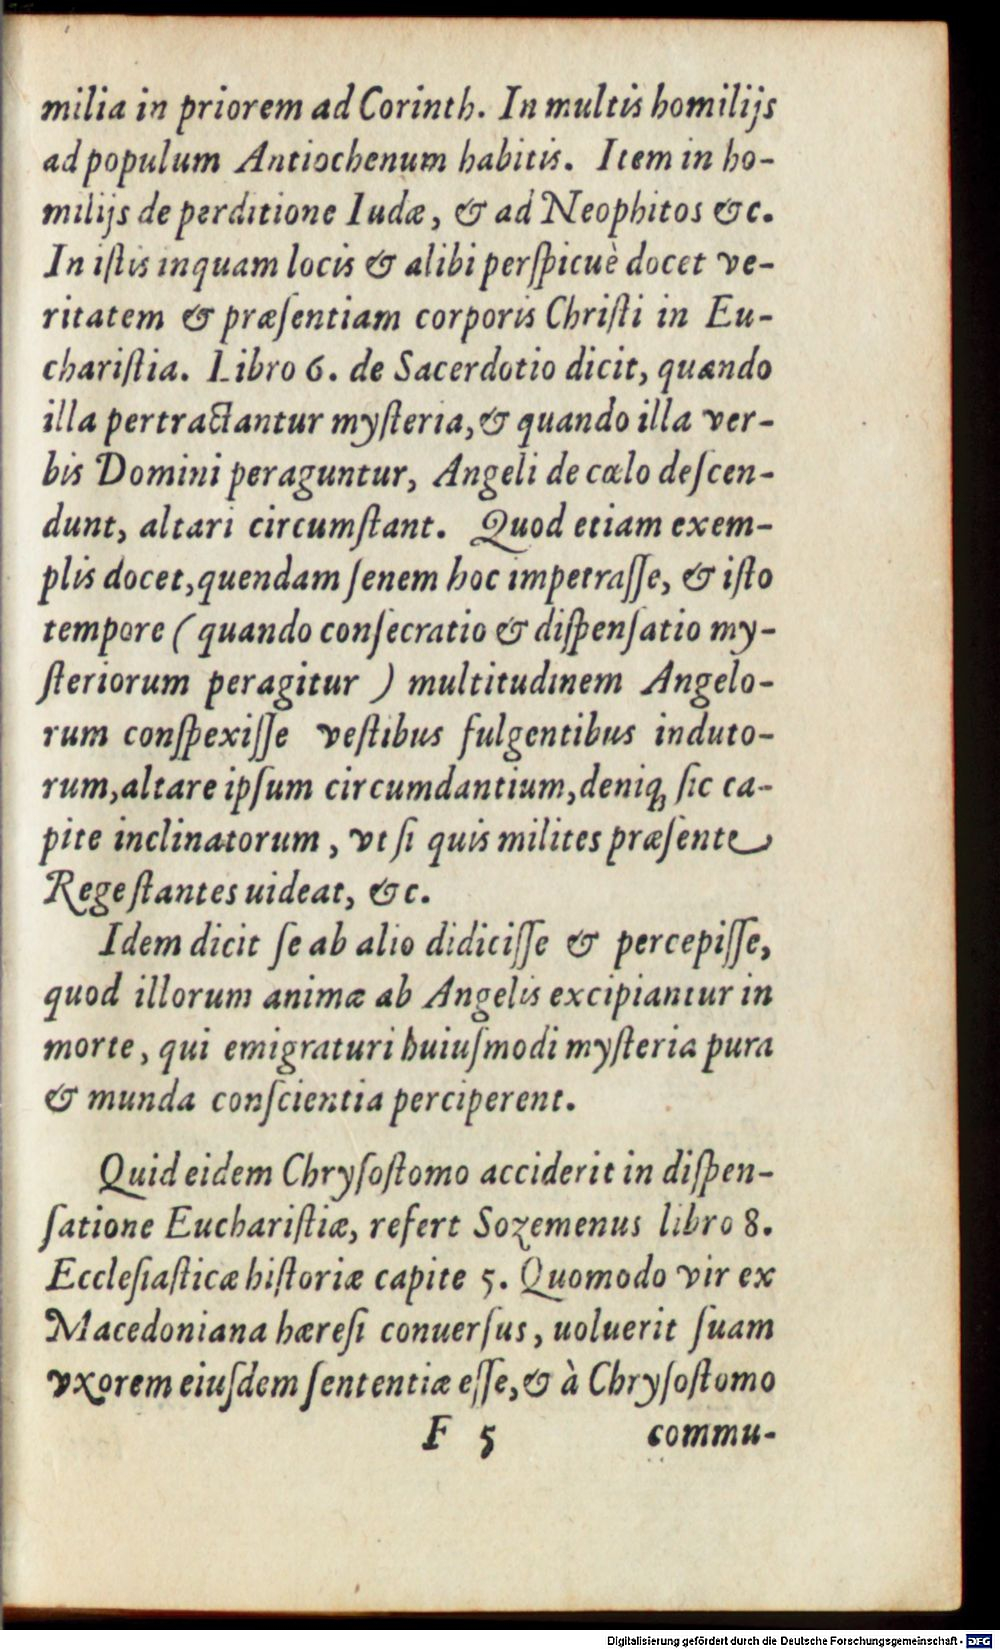 milia in priorem ad Corinth. In multis homilijs
ad populum Antiochenum habitis. Item in ho-
milijs de perditione Iudæ, & ad Neophitos &c.
In iſtis inquam locis & alibi perſpicuè docet ve-
ritatem & præſentiam corporis Chriſti in Eu-
chariſtia. Libro 6. de Sacerdotio dicit, quando
illa pertractantur myſteria, & quando illa ver-
bis Domini peraguntur, Angeli de cœlo deſcen-
dunt, altari circumſtant. Quod etiam exem-
plis docet, quendam ſenem hoc impetraſſe, & iſto
tempore ( quando conſecratio & diſpenſatio my-
ſteriorum peragitur ) multitudinem Angelo-
rum conſpexiſſe veſtibus fulgentibus induto-
rum, altare ipſum circumdantium, deniq; ſic ca-
pite inclinatorum, vt ſi quis milites præſente
Rege ſtantes uideat, &c.
Idem dicit ſe ab alio didiciſſe & percepiſſe,
quod illorum animæ ab Angelis excipiantur in
morte, qui emigraturi huiuſmodi myſteria pura
& munda conſcientia perciperent.
Quid eidem Chryſoſtomo acciderit in diſpen-
ſatione Euchariſtiæ, refert Sozemenus libro 8.
Eccleſiaſticæ hiſtoriæ capite 5. Quomodo vir ex
Macedoniana hæreſi conuerſus, uoluerit ſuam
vxorem eiuſdem ſententiæ eſſe, & à Chryſoſtomo
F 5 commu-
Digitalisierung gefördert durch die Deutsche Forschungsgemeinschaft - DFG